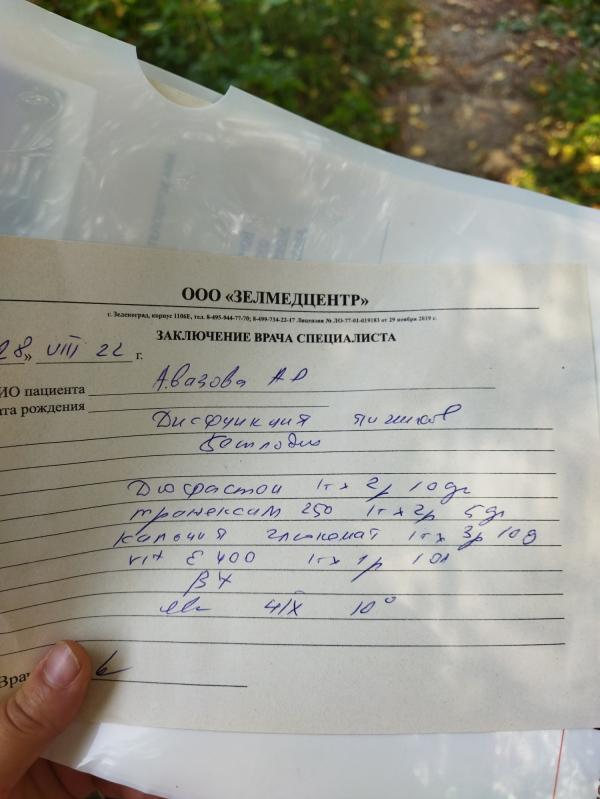 ООО «ЗЕЛМЕДЦЕНТР»
г. Зеленоград, корпус 1106Е, тел. 8-495-944-77-70; 8-499-734-22-17 Лицензия № ЛО-77-01-019183 от 29 ноября 2019 г.
ЗАКЛЮЧЕНИЕ ВРАЧА СПЕЦИАЛИСТА
28» VIII 22 г.
ИО пациента Авазова АР
та рождения
Дисфункция яичников
Бесплодие
1т х 2р 10дн
транексам 250 1т х 2р 5д
кальция глюконат 1т х 3р 10д
vit E 400 1т х 1р 10д
4/IX 10°
Вра